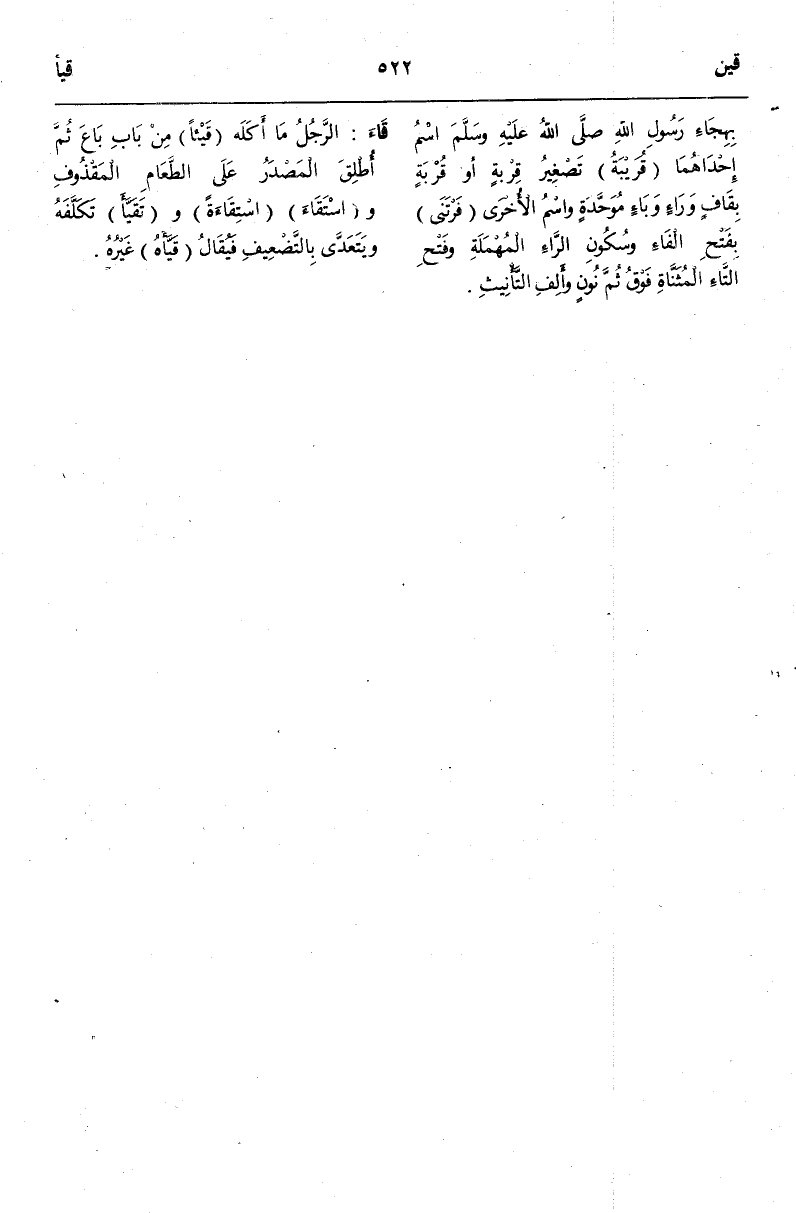 قين ٥٢٢ قيأ
بِهِجَاءِ رَسُولِ اللهِ صلَّى اللهُ علَيْهِ وسَلَّمَ اسْمُ
إِحْدَاهُمَا ( قُرَيْبَةُ ) تَصْغِيرُ قِرْبةٍ أو قُرْبَةٍ
بِقَافٍ وَرَاءٍ وَبَاءٍ مُوَحَّدَةٍ واسْمُ الأُخرَى ( فَرْتَنَى )
بِفَتْحِ الْفَاءِ وسُكُونِ الرَّاءِ الْمُهْمَلَةِ وفَتْحِ
التَّاءِ الْمُثَنَّاةِ فَوْقُ ثُمَّ نُونٍ وأَلِفِ التَّأْنِيثِ .
قَاءَ : الرَّجُلُ مَا أَكَلَه ( قَيْئاً ) مِنْ بَابِ بَاعَ ثُمَّ
أُطْلِقَ الْمَصْدَرُ عَلَى الطَّعَامِ الْمَقْذُوفِ
و ( اسْتَقَاءَ ) ( اسْتِقَاءَةً ) و ( تَقَيَّأَ ) تَكَلَّفَهُ
ويَتَعَدَّى بِالتَّضْعِيفِ فَيُقَالُ ( قَيَّأَهُ ) غَيْرُهُ .